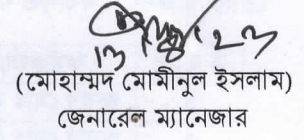 (মোহাম্মদ মোমীনুল ইসলাম)
জেনারেল ম্যানেজার